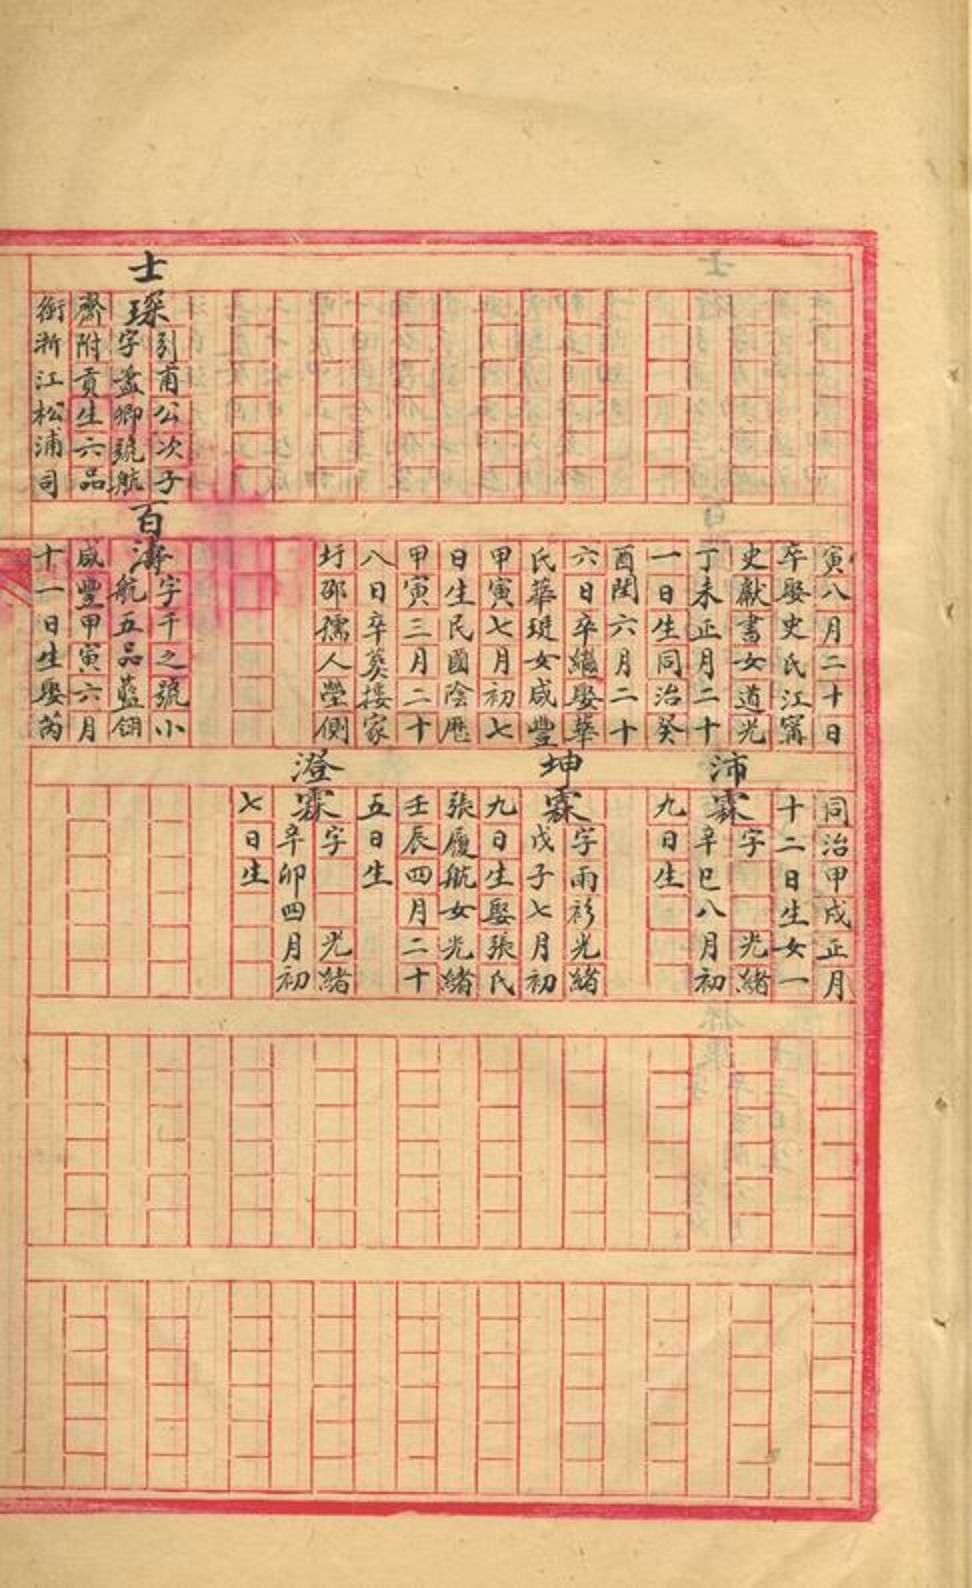 士琛
引甫公次子
字盈卿號航
齋附貢生六品
銜浙江松浦司
寅八月二十日
卒娶史氏江甯
史獻書女道光
丁未正月二十
一日生同治癸
酉閏六月二十
六日卒繼娶華
氏華珽女咸豐
甲寅七月初七
日生民國陰厯
甲寅三月二十
八日卒葬摟家
圩邵孺人塋側
百濤
字千之號小
航五品藍翎
咸豐甲寅六月
十一日生娶芮
同治甲戌正月
十二日生女一
沛霖
字 光緒
辛巳八月初
九日生
坤霖
字雨衫光緒
戊子七月初
九日生娶張氏
張履航女光緒
壬辰四月二十
五日生
澄霖
字 光緒
辛卯四月初
七日生